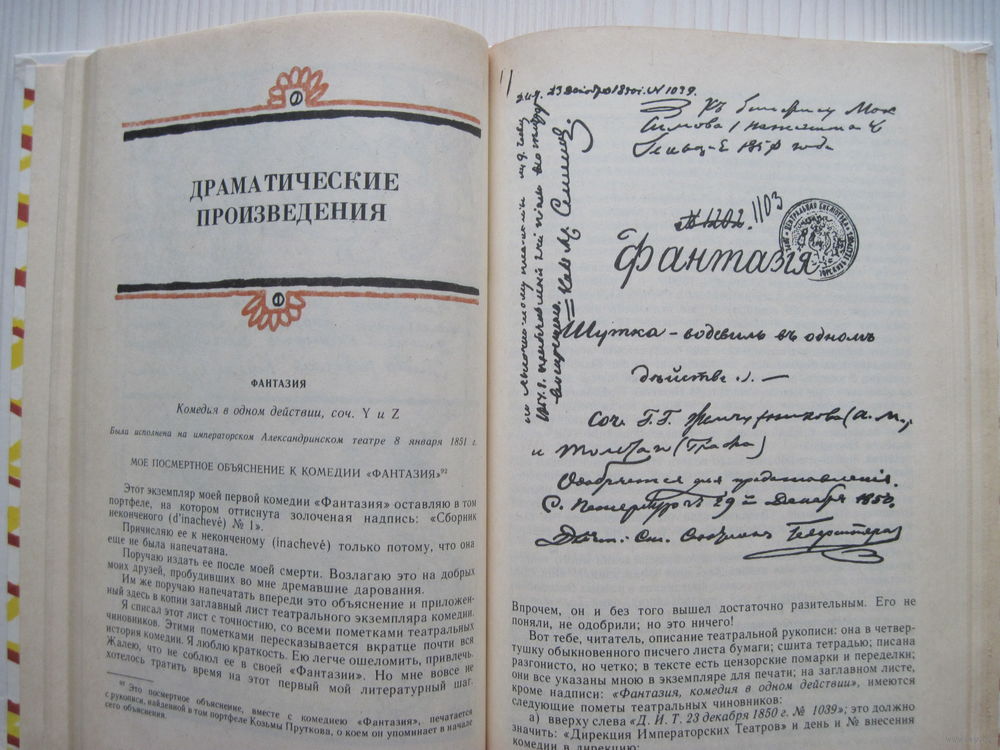 ДРАМАТИЧЕСКИЕ
ПРОИЗВЕДЕНИЯ
ФАНТАЗИЯ
Комедия в одном действии, соч. Y и Z
Была исполнена на императорском Александринском театре 8 января 1851 г.
МОЕ ПОСМЕРТНОЕ ОБЪЯСНЕНИЕ К КОМЕДИИ «ФАНТАЗИЯ»⁹²
Этот экземпляр моей первой комедии «Фантазия» оставляю в том
портфеле, на котором оттиснута золоченая надпись: «Сборник
неконченого (d'inachevé) № 1».
Причисляю ее к неконченому (inachevé) только потому, что она
еще не была напечатана.
Поручаю издать ее после моей смерти. Возлагаю это на добрых
моих друзей, пробудивших во мне дремавшие дарования.
Им же поручаю напечатать впереди это объяснение и приложен-
ный здесь в копии заглавный лист театрального экземпляра комедии.
Я списал этот лист с точностию, со всеми пометками театральных
чиновников. Этими пометками пересказывается вкратце почти вся
история комедии. Я люблю краткость. Ею легче ошеломить, привлечь.
Жалею, что не соблюл ее в своей «Фантазии». Но мне вовсе не
хотелось тратить время на этот первый мой литературный шаг.
Это посмертное объяснение, вместе с комедиею «Фантазия», печатается
с рукописи, найденной в том портфеле Козьмы Пруткова, о коем он упоминает в начале
сего объяснения.
№ 1039.
1103
Фантазія
Шутка – водевиль въ одномъ
дѣйствіи. –
соч.
и Толстаго (Графа)
Одобряется для представленія.
С. Петербургъ 29 Декабря 1850.
Впрочем, он и без того вышел достаточно разительным. Его не
поняли, не одобрили; но это ничего!
Вот тебе, читатель, описание театральной рукописи: она в четвер-
тушку обыкновенного писчего листа бумаги; сшита тетрадью; писана
разгонисто, но четко; в тексте есть цензорские помарки и переделки;
они все указаны мною в экземпляре для печати; на заглавном листе,
кроме надписи: «Фантазия, комедия в одном действии», имеются
следующие пометы театральных чиновников:
а) вверху слева «Д. И. Т. 23 декабря 1850 г. № 1039»; это должно
значить: «Дирекция Императорских Театров» и день и № внесения
комедии в дирекцию;